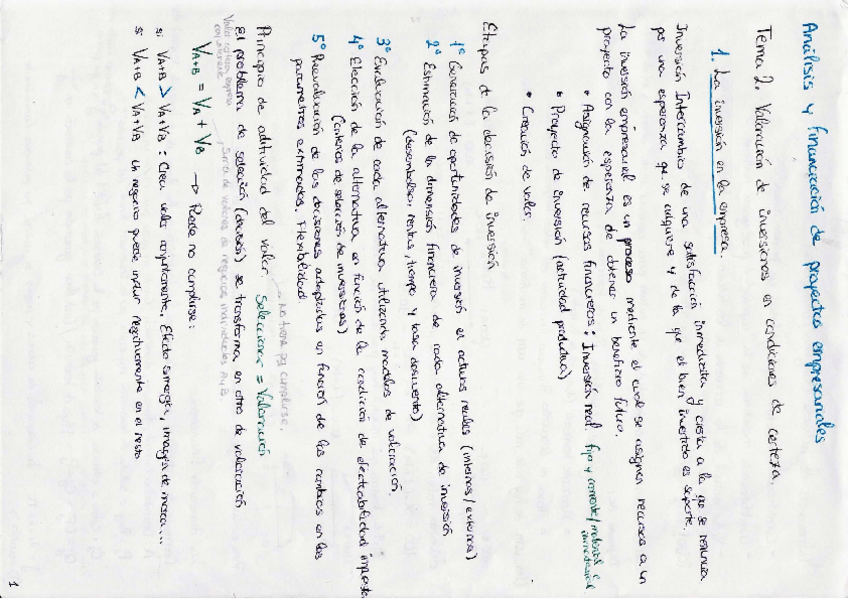 Análisis y financiación de proyectos empresariales
Tema 2. Valoración de inversiones en condiciones de certeza.
1. La inversión en la empresa.
Inversión Intercambio de una satisfacción inmediata y cierta a la que se renuncia
por una esperanza que se adquiere y de la que el bien invertido es soporte.
La inversión empresarial es un proceso mediante el cual se asignan recursos a un
proyecto con la esperanza de obtener un beneficio futuro.
• Asignación de recursos financieros: Inversión real. fija y corriente/material e
inmaterial
• Proyecto de inversión (actividad productiva)
• Creación de valor.
Etapas de la decisión de inversión
1º Generación de oportunidades de inversión en activos reales (internos/externos)
2º Estimación de la dimensión financiera de cada alternativa de inversión
(desembolsos, rentas, tiempo y tasa descuento)
3º Evaluación de cada alternativa utilizando modelos de valoración.
4º Elección de la alternativa en función de la condición de efectuabilidad impuesta
(criterios de selección de inversiones)
5º Reevaluación de las decisiones adoptadas en función de los cambios en los
parámetros estimados. Flexibilidad
→ No tiene pq cumplirse.
Principio de aditividad del valor. Seleccionar = Valoración
El problema de selección (decisión) se transforma en otro de valoración
Valor
conjuntamente
suma de valores de negocios individuales A y B
VA+B = VA + VB → Puede no cumplirse:
si VA+B > VA+VB : Crea valor conjuntamente. Efecto sinergia, imagen de marca...
si VA+B < VA+VB Un negocio puede influir negativamente en el resto
1